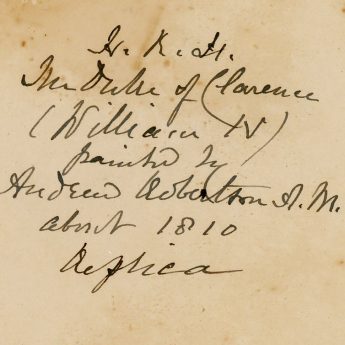 H. R. H.
The Duke of Clarence
(William IV)
painted by
Andrew Robertson A. M.
about 1810
Replica